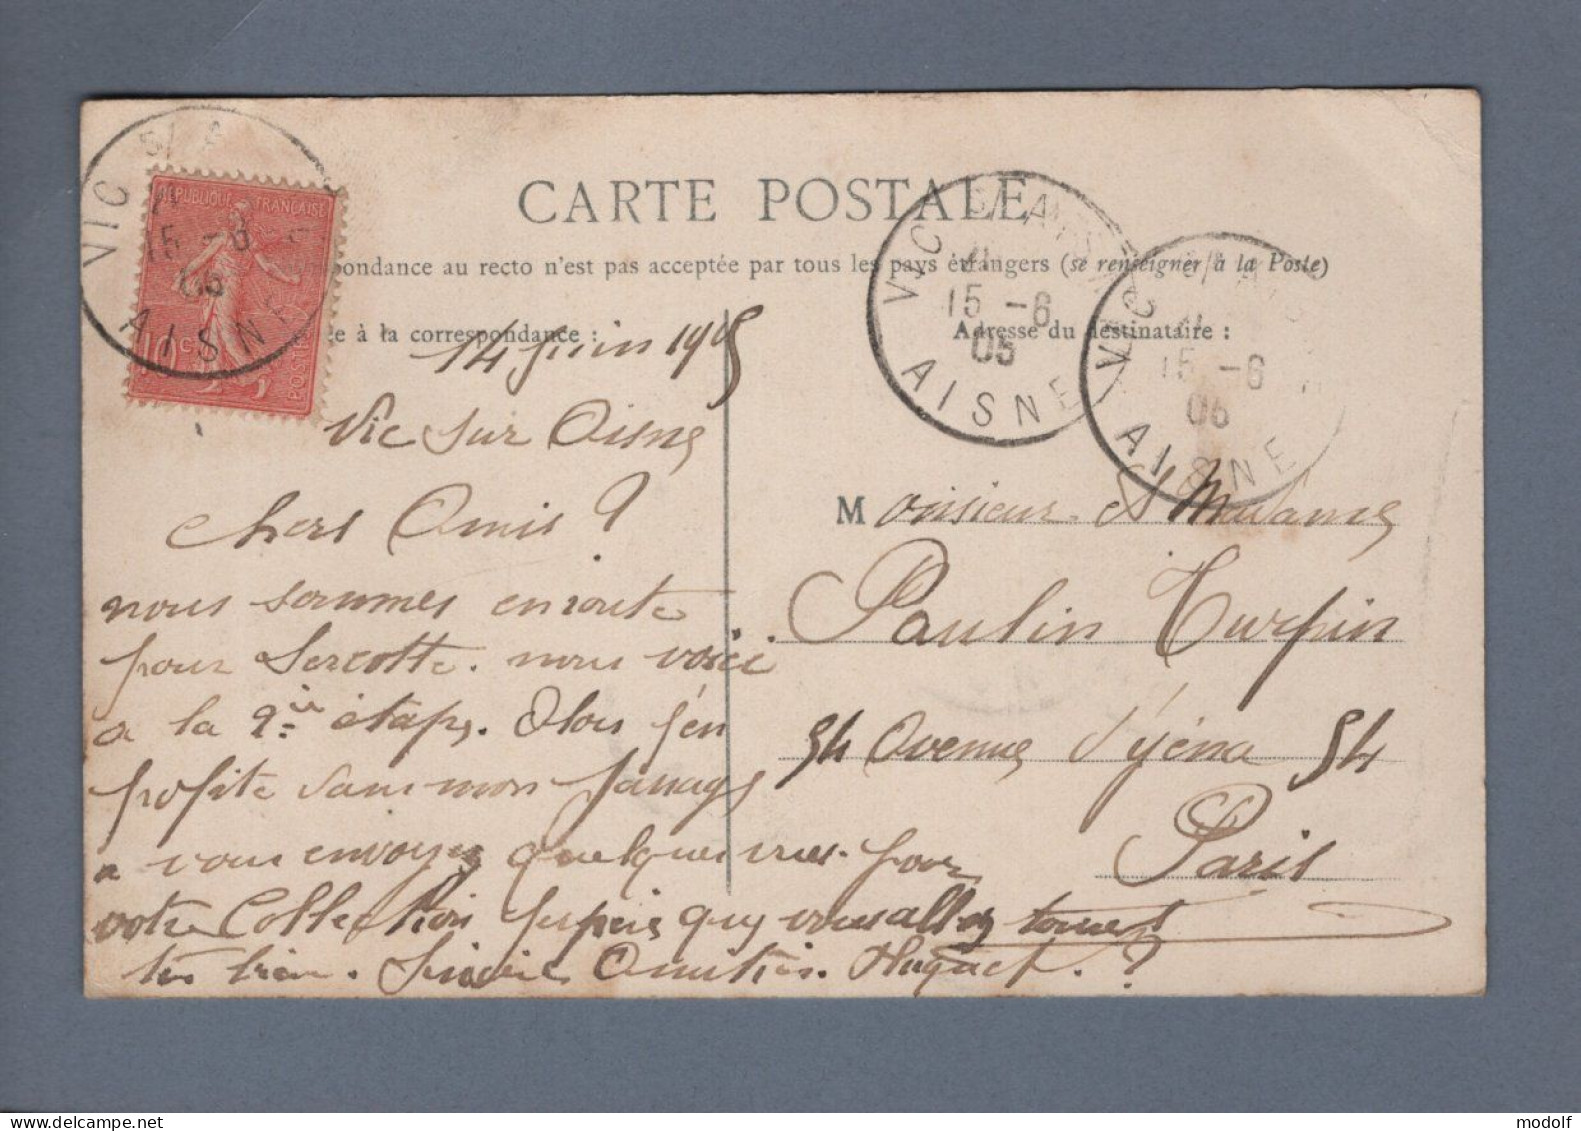 CARTE POSTALE
pondance au recto n'est pas acceptée par tous les pays étrangers (se renseigner à la Poste)
e à la correspondance :
Adresse du destinataire :
REPUBLIQUE FRANÇAISE
10 c
POSTE
VIC S/ A
15 -6
05
AISNE
VIC S/ AISNE
15 -6
05
AISNE
VIC S/ A
15 -6
05
AISNE
14 juin 1905
Vic sur Aisne
Chers Amis
nous sommes en route
pour Sercotte. nous voici
a la 2ie étape. Alors j'en
profite dans mon passage
a vous envoyez quelques vues pour
votre Collection j'espère que vous allez tous
tès bien. Sincère Amitiés.
Monsieur et Madame
Paulin Turpin
54 Avenue d'yéna 54
Paris
modolf